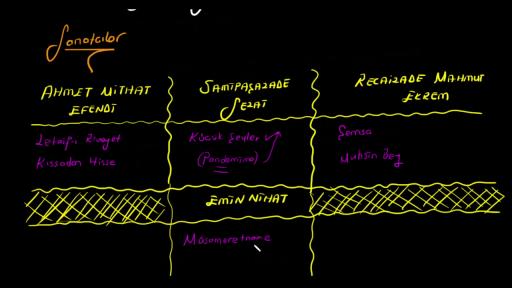 Sanatcılar
AHMET MİTHAT
EFENDİ
SAMİPAŞAZADE
SEZAİ
RECAİZADE MAHMUT
EKREM
Letaif-i Rivayet
Kıssadan Hisse
Küçük Şeyler
(Pandomima)
Şemsa
Muhsin Bey
EMİN NİHAT
Müsameretname